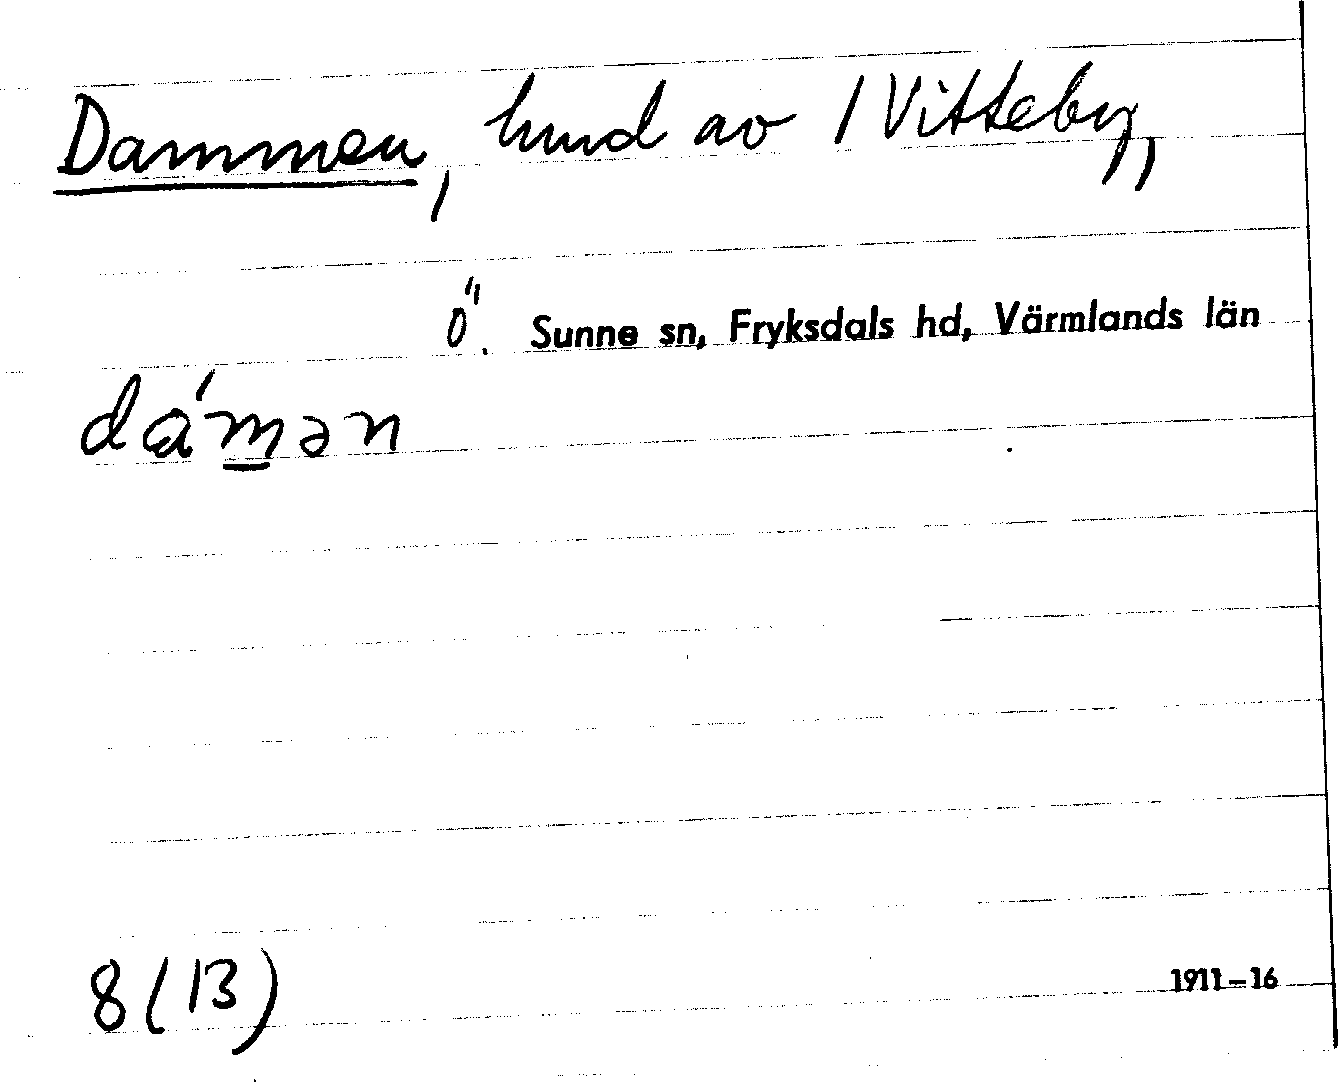 Dammen, hmd av 1 Vitteby,
Ö. Sunne sn, Fryksdals hd, Värmlands län
dá'mən
8 (13)
1911–16